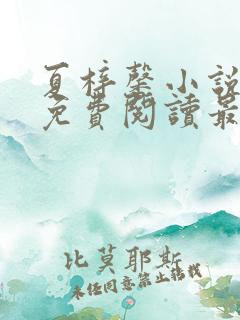 夏梓馨小說
免費閱讀最
比莫耶斯
未經同意禁止轉載